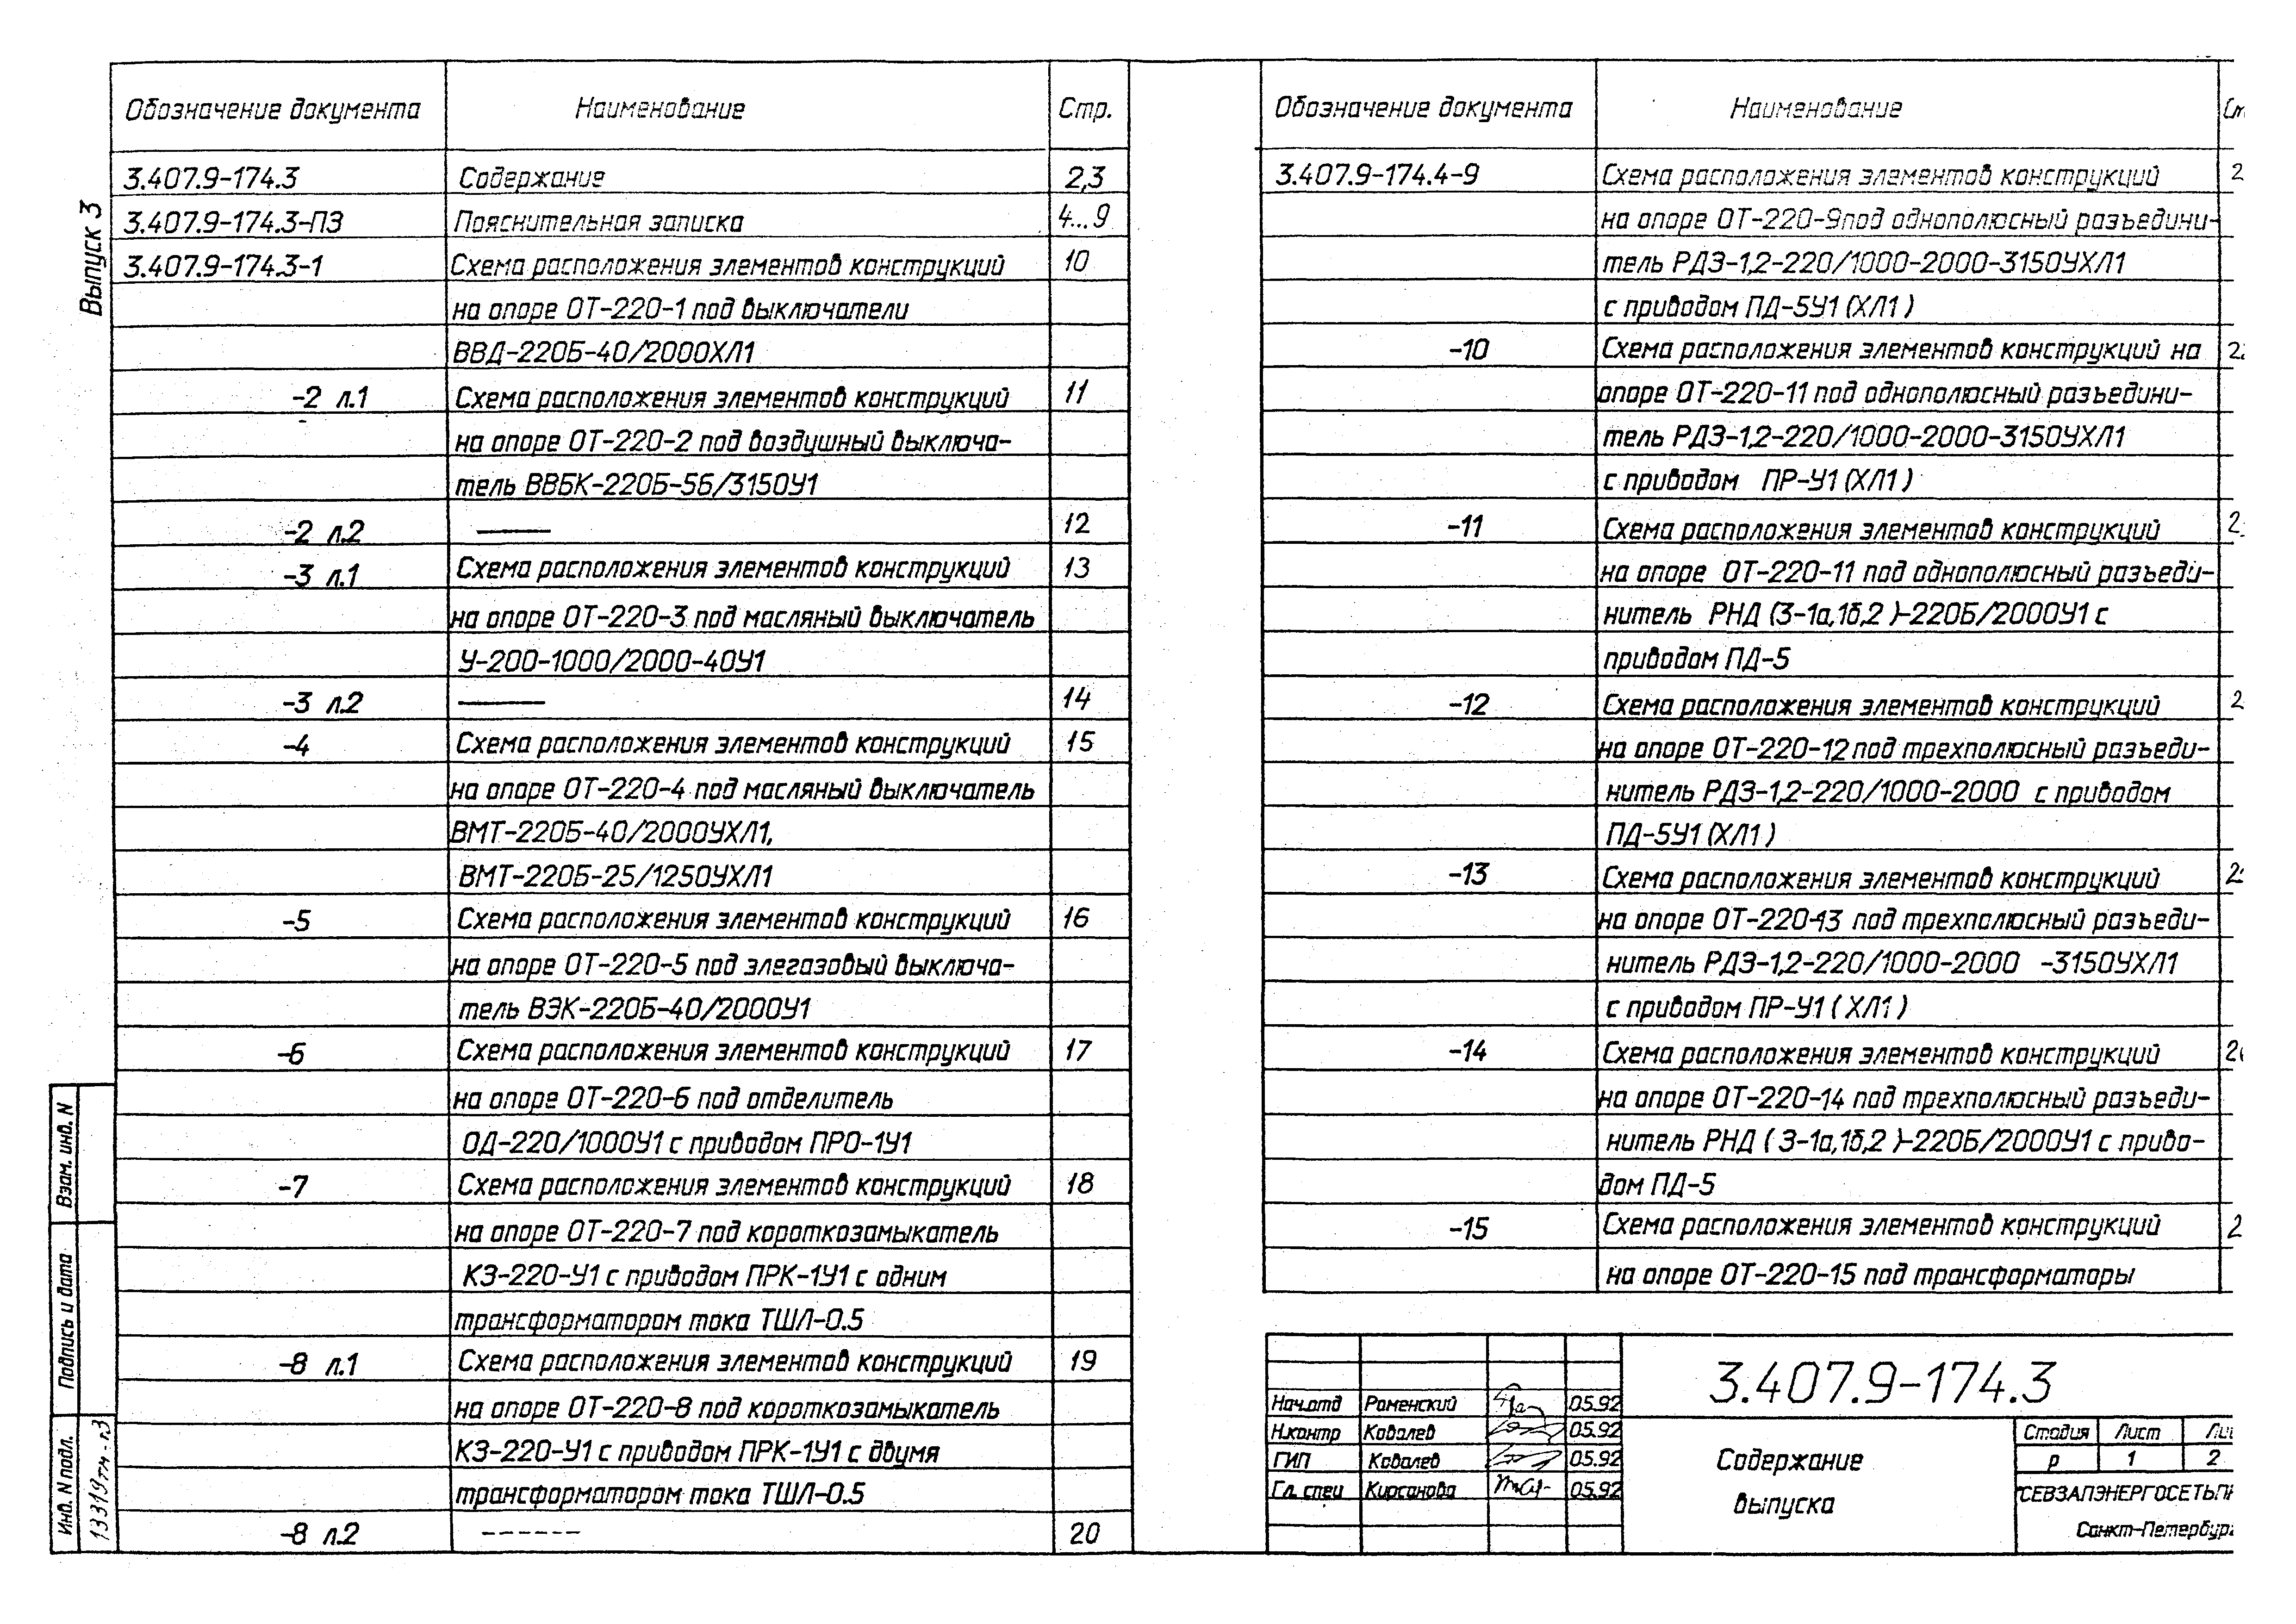 Выпуск 3
Обозначение документа Наименование Стр.
3.407.9-174.3 Содержание 2,3
3.407.9-174.3-ПЗ Пояснительная записка 4...9
3.407.9-174.3-1 Схема расположения элементов конструкций 10
на опоре ОТ-220-1 под выключатели
ВВД-220Б-40/2000ХЛ1
-2 л.1 Схема расположения элементов конструкций 11
на опоре ОТ-220-2 под воздушный выключа-
тель ВВБК-220Б-56/3150У1
-2 л.2 ——— 12
-3 л.1 Схема расположения элементов конструкций 13
на опоре ОТ-220-3 под масляный выключатель
У-200-1000/2000-40У1
-3 л.2 ——— 14
-4 Схема расположения элементов конструкций 15
на опоре ОТ-220-4 под масляный выключатель
ВМТ-220Б-40/2000УХЛ1,
ВМТ-220Б-25/1250УХЛ1
-5 Схема расположения элементов конструкций 16
на опоре ОТ-220-5 под элегазовый выключа-
тель ВЭК-220Б-40/2000У1
-6 Схема расположения элементов конструкций 17
на опоре ОТ-220-6 под отделитель
ОД-220/1000У1 с приводом ПРО-1У1
-7 Схема расположения элементов конструкций 18
на опоре ОТ-220-7 под короткозамыкатель
КЗ-220-У1 с приводом ПРК-1У1 с одним
трансформатором тока ТШЛ-0.5
-8 л.1 Схема расположения элементов конструкций 19
на опоре ОТ-220-8 под короткозамыкатель
КЗ-220-У1 с приводом ПРК-1У1 с двумя
трансформатором тока ТШЛ-0.5
-8 л.2 ------ 20
Обозначение документа Наименование
3.407.9-174.4-9 Схема расположения элементов конструкций
на опоре ОТ-220-9 под однополюсный разъедини-
тель РДЗ-1,2-220/1000-2000-3150УХЛ1
с приводом ПД-5У1 (ХЛ1)
-10 Схема расположения элементов конструкций на
опоре ОТ-220-11 под однополюсный разъедини-
тель РДЗ-1,2-220/1000-2000-3150УХЛ1
с приводом ПР-У1 (ХЛ1)
-11 Схема расположения элементов конструкций
на опоре ОТ-220-11 под однополюсный разъеди-
нитель РНД (З-1а,1б,2)-220Б/2000У1 с
приводом ПД-5
-12 Схема расположения элементов конструкций
на опоре ОТ-220-12 под трехполюсный разъеди-
нитель РДЗ-1,2-220/1000-2000 с приводом
ПД-5У1 (ХЛ1)
-13 Схема расположения элементов конструкций
на опоре ОТ-220-13 под трехполюсный разъеди-
нитель РДЗ-1,2-220/1000-2000 -3150УХЛ1
с приводом ПР-У1 (ХЛ1)
-14 Схема расположения элементов конструкций
на опоре ОТ-220-14 под трехполюсный разъеди-
нитель РНД (З-1а,1б,2)-220Б/2000У1 с приво-
дом ПД-5
-15 Схема расположения элементов конструкций
на опоре ОТ-220-15 под трансформаторы
Взам. инв. N
Подпись и дата
Инв. N подл.
13319тм-т3
3.407.9-174.3
Нач.отд Роменский 05.92
Н.контр Ковалев 05.92
ГИП Ковалев 05.92
Гл. спец Кирсанова 05.92
Содержание
выпуска
Стадия Лист
Р 1 2
Санкт-Петербург